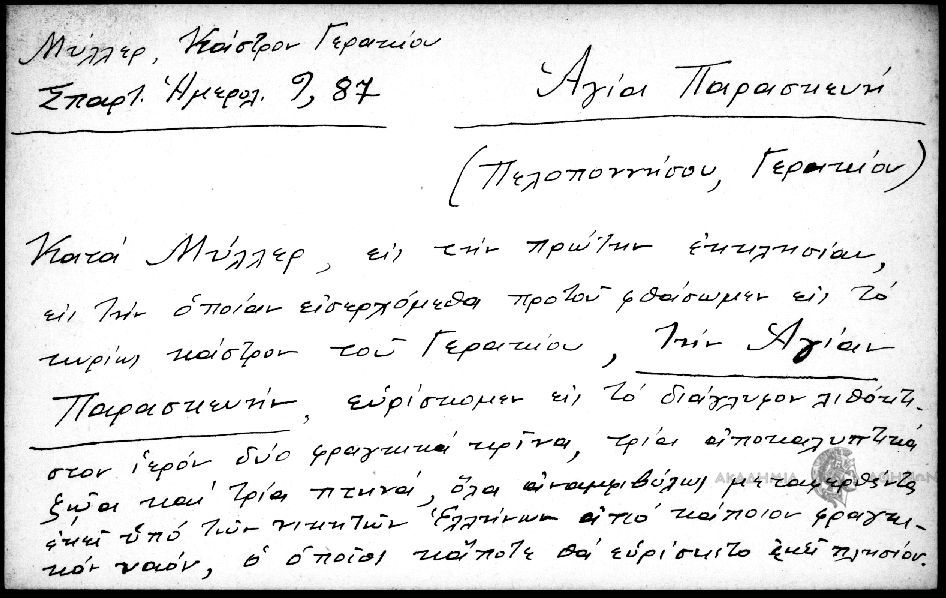 Μύλλερ, Κάστρον Γερακίου
Σπαρτ. Ἡμερολ. 9, 87
Ἁγία Παρασκευή
(Πελοποννήσου, Γερακίου)
Κατά Μύλλερ, εἰς τήν πρώτην ἐκκλησίαν,
εἰς τήν ὁποίαν εἰσερχόμεθα προτοῦ φθάσωμεν εἰς τό
κυρίως κάστρον τοῦ Γερακίου, τήν Ἁγίαν
Παρασκευήν, εὑρίσκομεν εἰς τό διάγλυφον λιθόκτι-
στον ἱερόν δύο φραγκικά κρῖνα, τρία ἀποκαλυπτικά
ζῷα καί τρία πτηνά, ὅλα ἀναμφιβόλως μεταφερθέντα
ἐκεῖ ὑπό τῶν νικητῶν Ἑλλήνων ἀπό κάποιον φραγκι-
κόν ναόν, ὁ ὁποῖος κάποτε θά εὑρίσκετο ἐκεῖ πλησίον.
ΑΚΑΔΗΜΙΑ ΑΘΗΝΩΝ